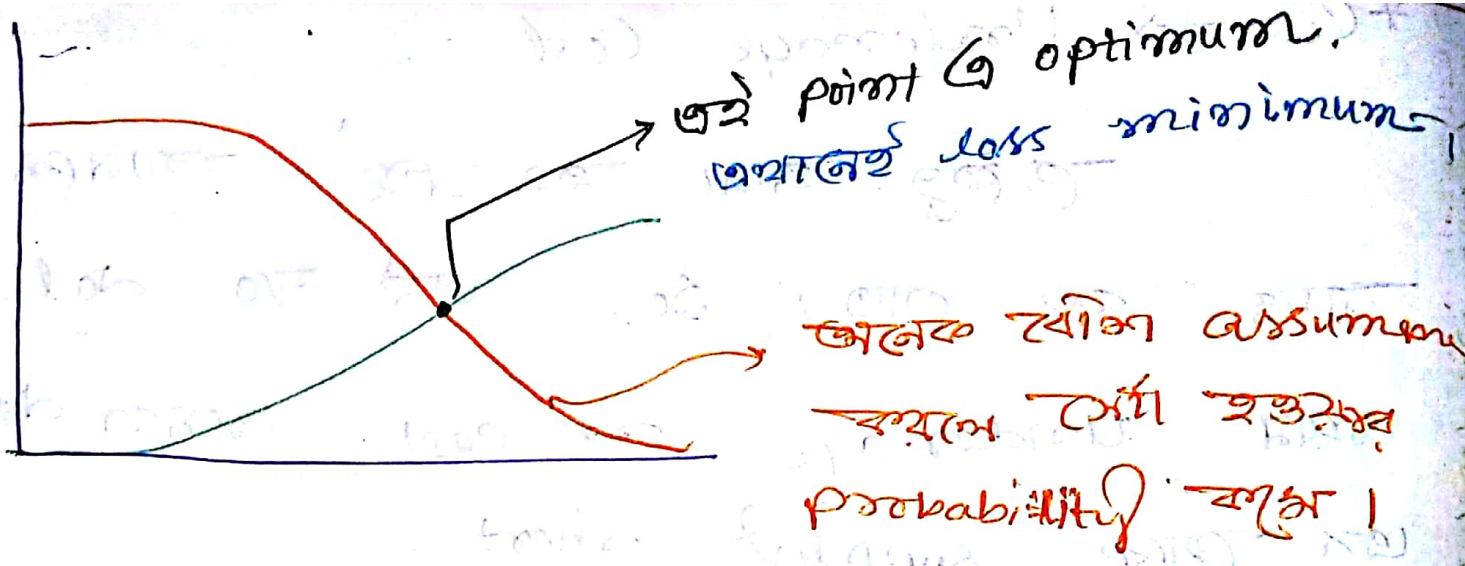 এই point এ optimum.
এখানেই loss minimum।
অনেক বেশি
করলে সেটা হওয়ার
probability কমে।